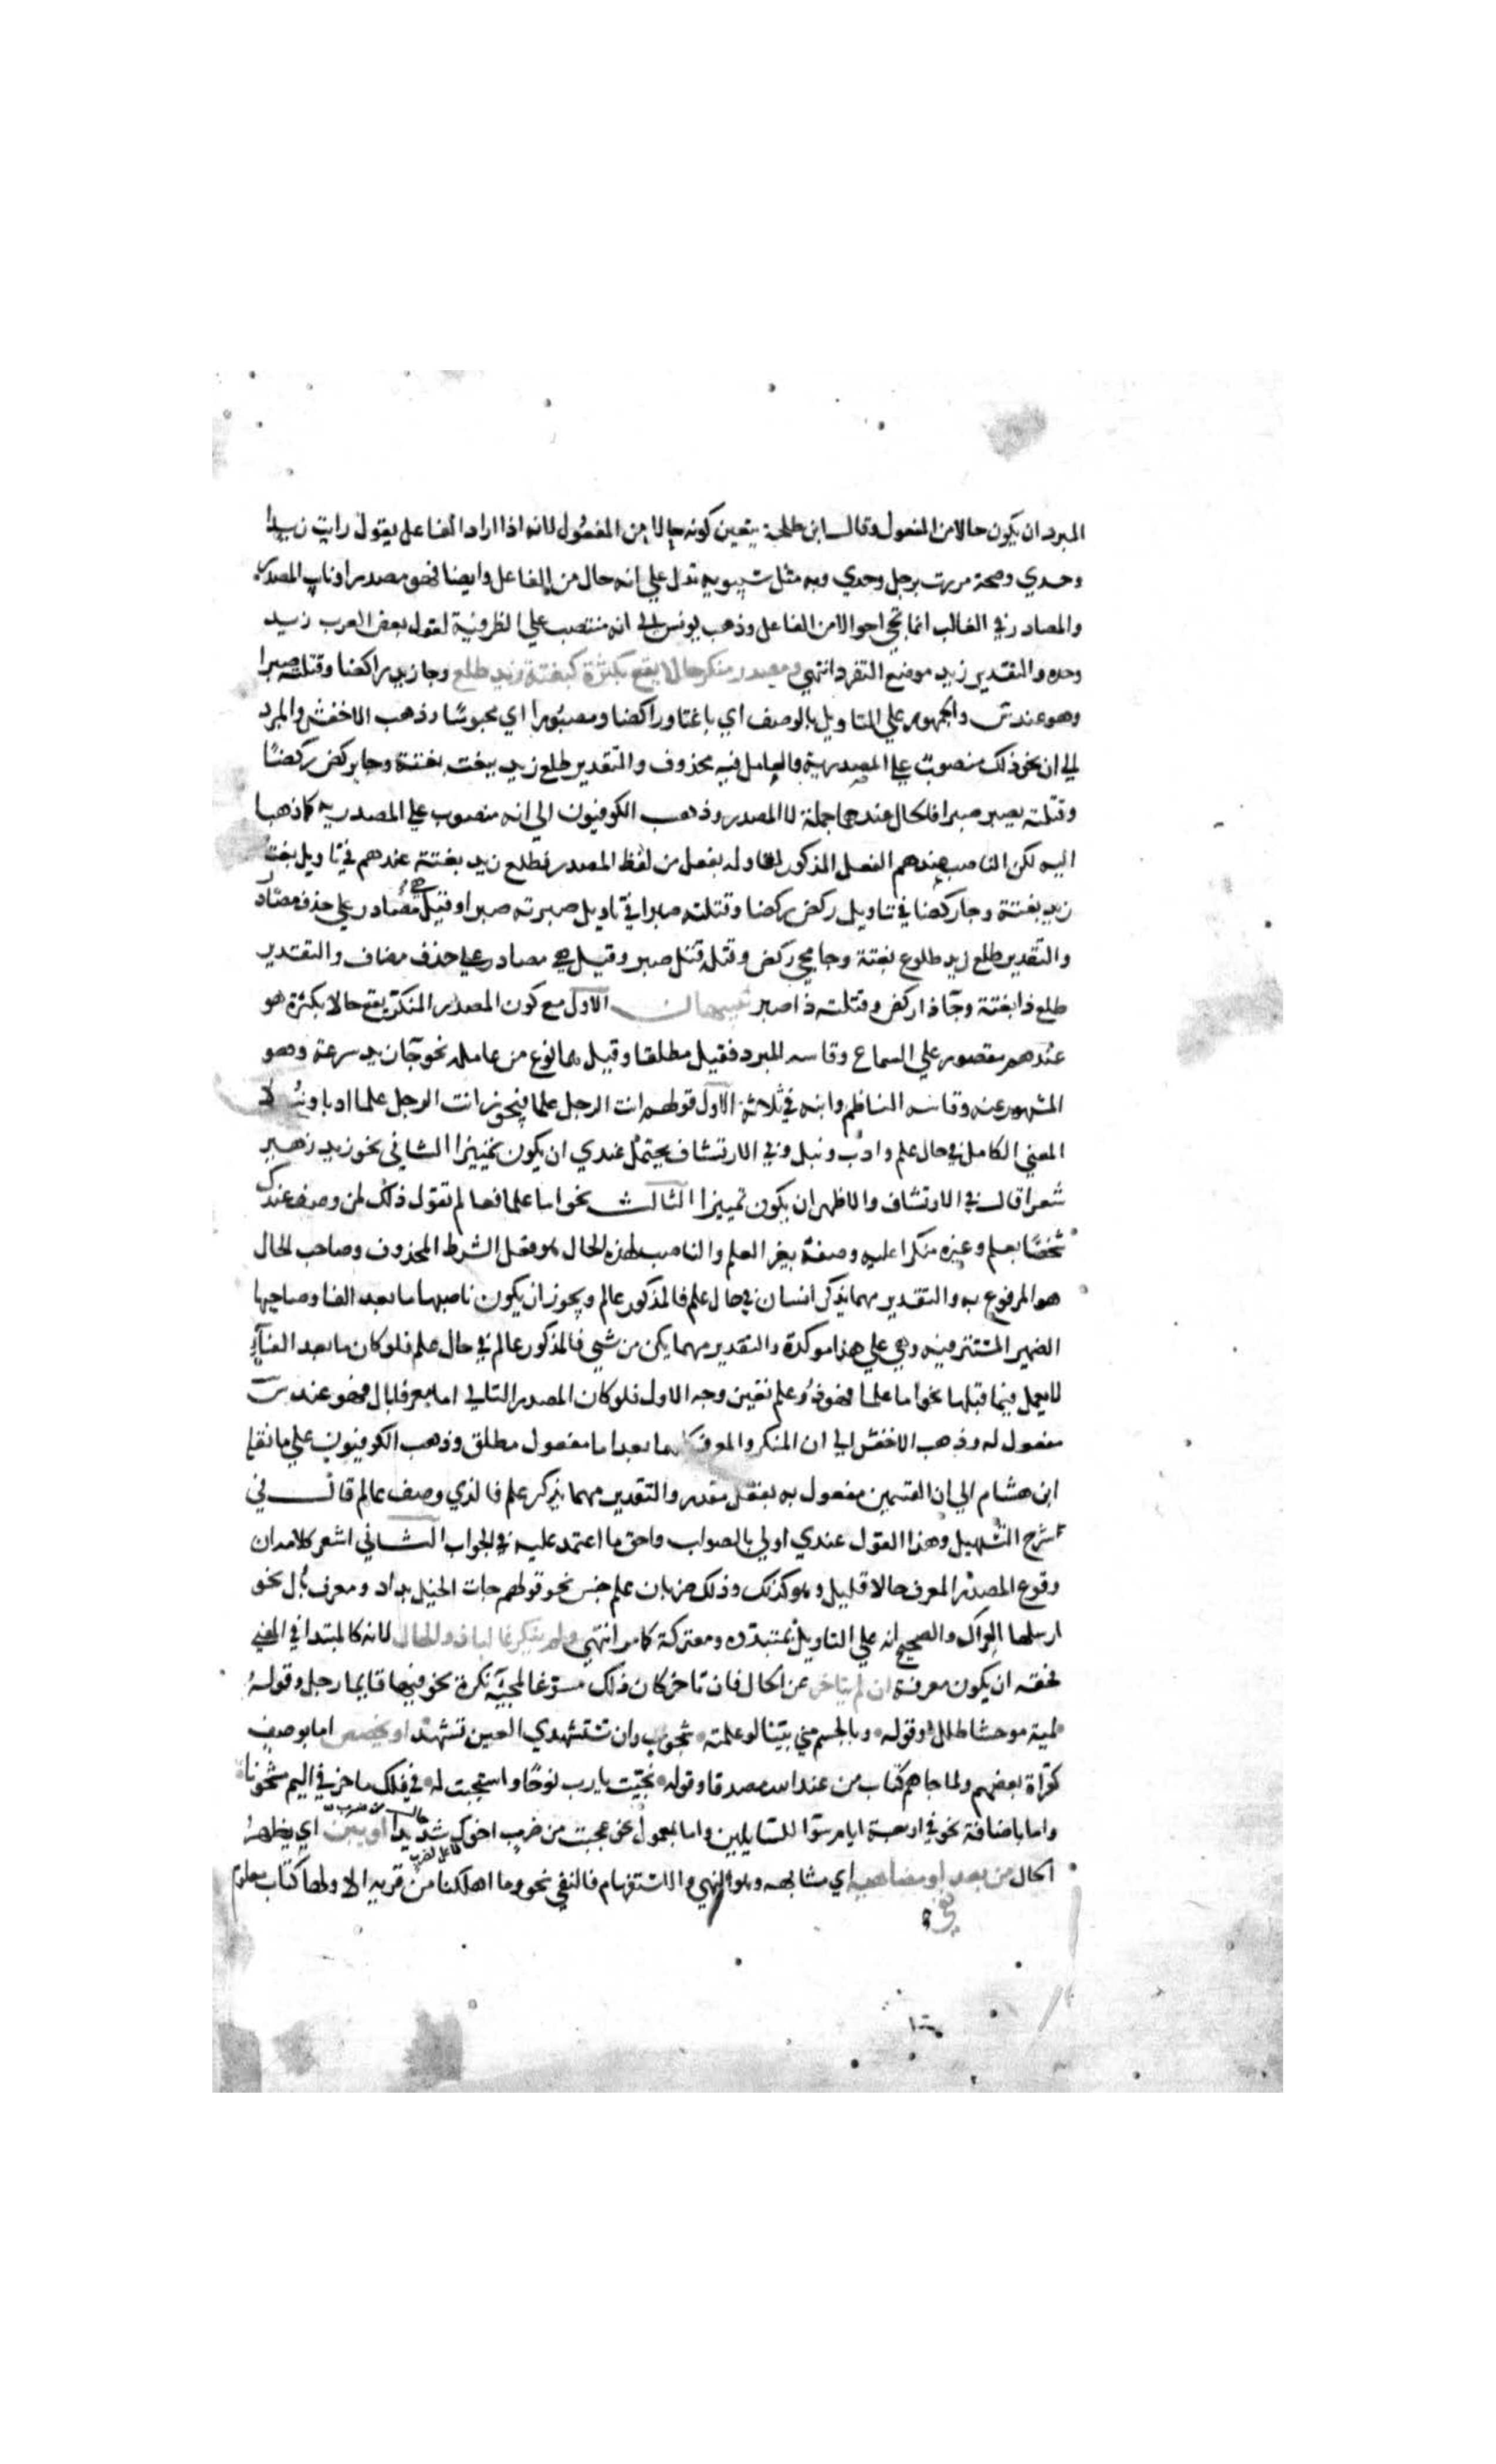 المبرد ان يكون حالا من المفعول وقال ابن طلحة يتعين كونه حالا من المفعول لانه اذا اراد الفاعل يقول رايت زيدا
وحدي وصحة مررت برجل وحدي وبه مثل سيبويه تدل علي انه حال من الفاعل وايضا فهو مصدر او نايب المصدر
والمصادر في الغالب انما تجي احوالا من الفاعل وذهب يونس الي انه منتصب علي الظرفية لقول بعض العرب زيد
وحده والتقدير زيد موضع التفرد انتهي ومصدر منكر حالا يقع بكثرة كبغتة زيد طلع وجا زيد راكضا وقتلته صبرا
وهو عند س والجمهور علي التاويل بالوصف اي باغتا وراكضا ومصبورا اي محبوسا وذهب الاخفش والمبرد
الي ان نحو ذلك منصوب علي المصدرية والعامل فيه محذوف والتقدير طلع زيد يبغت بغتة وجا يركض ركضا
وقتلته يصبر صبرا فالحال عندهما جملة لا المصدر وذهب الكوفيون الي انه منصوب علي المصدرية كما ذهبا
اليه لكن الناصب عندهم الفعل المذكور لتاوله بفعل من لفظ المصدر فطلع زيد بغتة عندهم في تاويل بغت
زيد بغتة وجا ركضا في تاويل ركض ركضا وقتلته صبرا في تاويل صبرته صبرا وقيل هي مصادر علي حذف مصادر
والتقدير طلع زيد طلوع بغتة وجا مجي ركض وقتله قتل صبر وقيل هي مصادر علي حذف مضاف والتقدير
طلع ذا بغتة وجا ذا ركض وقتلته ذا صبر تنبيهان الاول مع كون المصدر المنكر يقع حالا بكثرة هو
عندهم مقصور علي السماع وقاسه المبرد فقيل مطلقا وقيل بما نوع من عامله نحو جا زيد سرعة وهو
المشهور عنه وقاسه الناظم وابنه في ثلاثة الاول قولهم انت الرجل علما فيجوز انت الرجل علما ادبا ونبلا
المعني الكامل في حال علم وادب ونبل وفي الارتشاف يحتمل عندي ان يكون تمييزا الثاني نحو زيد زهير
شعرا قال في الارتشاف والاظهر ان يكون تمييزا الثالث نحو اما علما فعالم تقول ذلك لمن وصف عندك
شخصا بعلم وغيره منكرا عليه وصفه بغير العلم والناصب لهذه الحال هو فعل الشرط المحذوف وصاحب الحال
هو المرفوع به والتقدير مهما يذكر انسان في حال علم فالمذكور عالم ويجوز ان يكون ناصبها ما بعد الفا وصاحبها
الضمير المستتر فيه وهي علي هذا موكدة والتقدير مهما يكن من شي فالمذكور عالم في حال علم فلو كان ما بعد الفاء
لا يعمل فيما قبلها نحو اما علما فهو ذو علم تعين وجه الاول فلو كان المصدر التالي اما معرفا بال فهو عند س
مفعول له وذهب الاخفش الي ان المنكر والمعرف كليهما بعد اما مفعول مطلق وذهب الكوفيون علي ما نقله
ابن هشام الي ان القسمين مفعول به بفعل مقدر والتقدير مهما يذكر علم فالذي وصف عالم قال في
شرح التسهيل وهذا القول عندي اولي بالصواب واحق ما اعتمد عليه في الجواب الثاني اشعر كلامه ان
وقوع المصدر المعرف حالا قليل وهو كذلك وذلك ضربان علم جنس نحو قولهم جات الخيل بداد ومعرف بال نحو
ارسلها العراك والصحيح انه علي التاويل بمتبددة ومعتركة كما مر انتهي ولم ينكر غالبا ذو الحال لانه كالمبتدا في المعني
فحقه ان يكون معرفة ان لم يتاخر عن الحال فان تاخر كان ذلك مسوغا لمجيئه نكرة نحو فيها قايما رجل وقوله
لمية موحشا طلل وقوله وبالجسم مني بينا لو علمته شحوب وان تستشهدي العين تشهد او يخصص اما بوصف
كقراة بعضهم ولما جاهم كتاب من عند الله مصدقا وقوله نجيت يارب نوحا واستجبت له في فلك ماخر في اليم مشحونا
واما باضافة نحو في اربعة ايام سوا للسايلين واما بمعمول نحو عجبت من ضرب اخوك شديدا او يبن اي يظهر
الحال من بعد نفي او مضاهيه اي مشابهه وهو النهي والاستفهام فالنفي نحو وما اهلكنا من قرية الا ولها كتاب معلوم